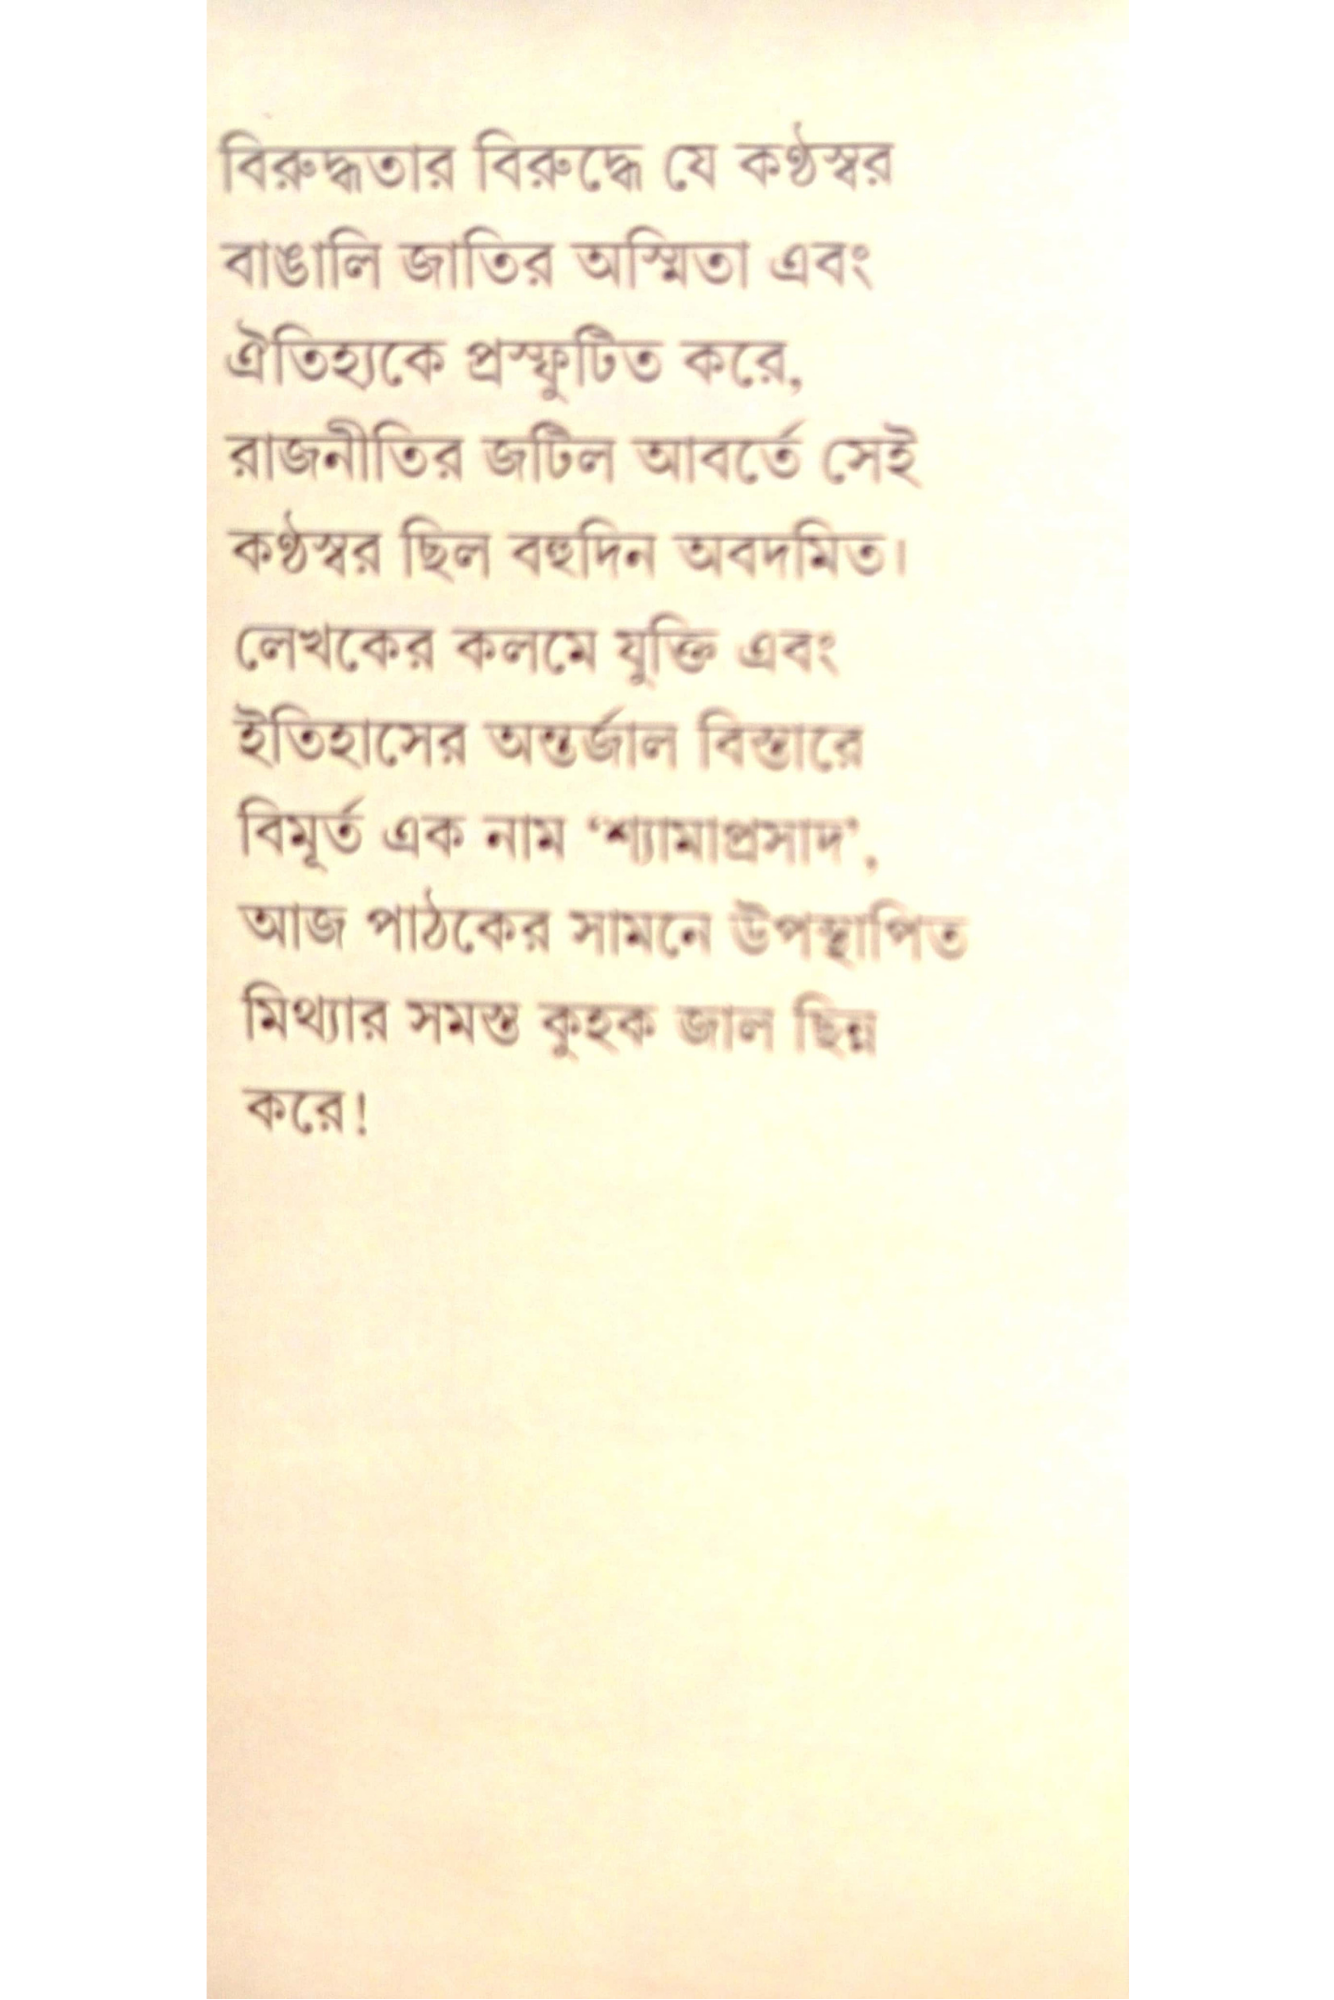 বিরুদ্ধতার বিরুদ্ধে যে কণ্ঠস্বর
বাঙালি জাতির অস্মিতা এবং
ঐতিহ্যকে প্রস্ফুটিত করে,
রাজনীতির জটিল আবর্তে সেই
কণ্ঠস্বর ছিল বহুদিন অবদমিত।
লেখকের কলমে যুক্তি এবং
ইতিহাসের অন্তর্জাল বিস্তারে
বিমূর্ত এক নাম ‘শ্যামাপ্রসাদ’,
আজ পাঠকের সামনে উপস্থাপিত
মিথ্যার সমস্ত কুহক জাল ছিন্ন
করে!